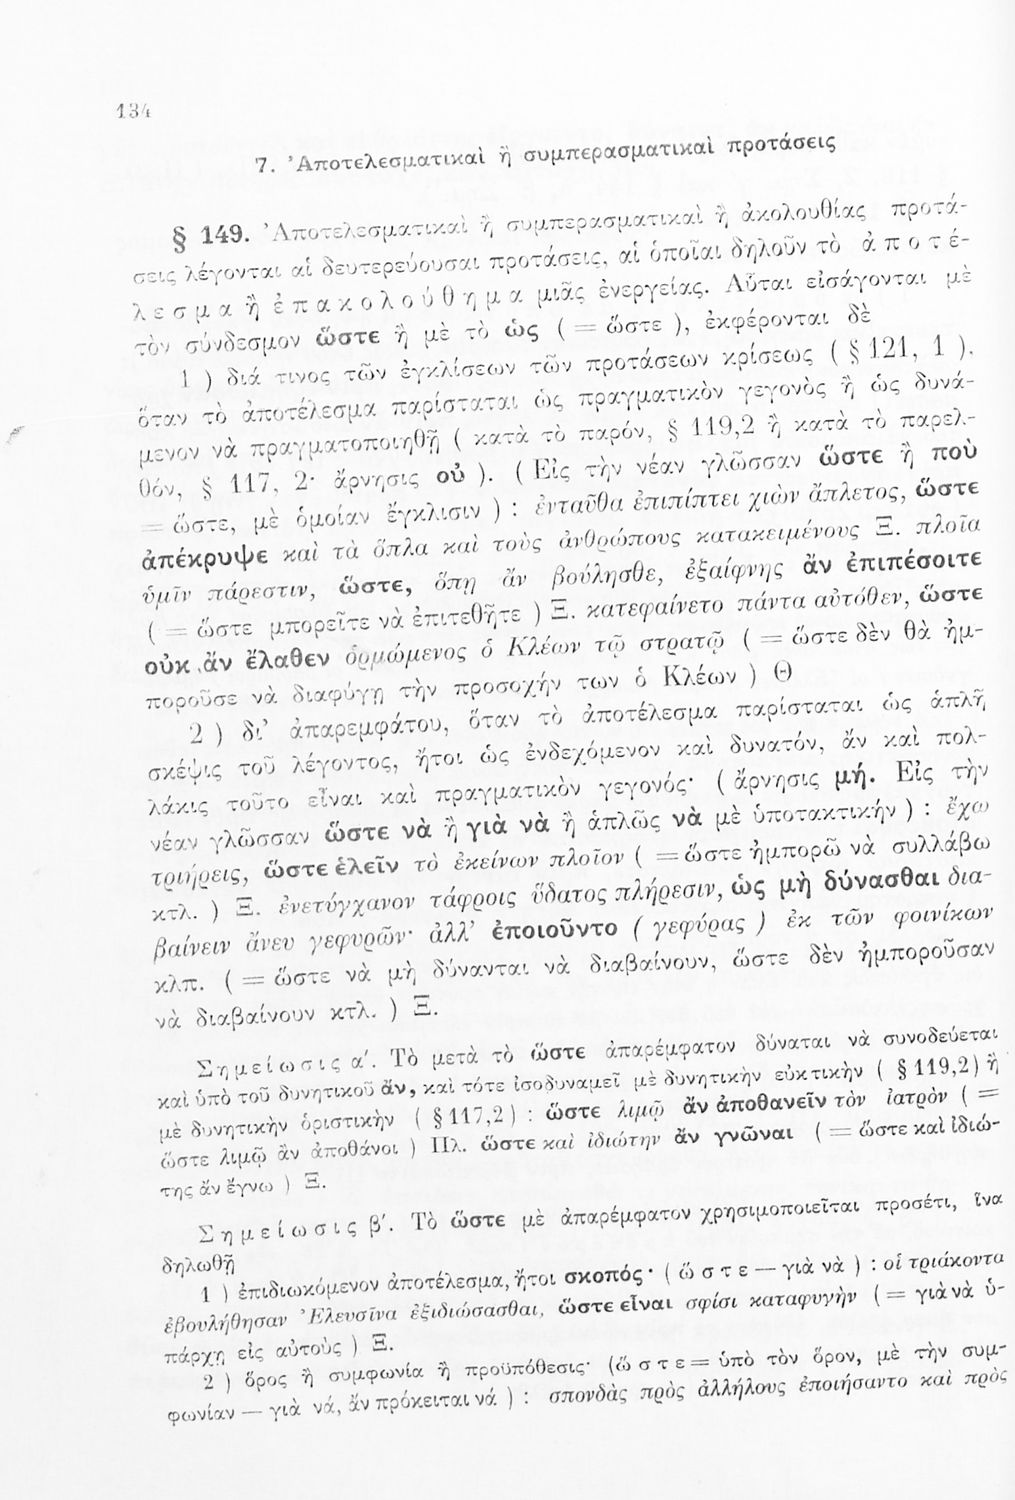 134
7. Ἀποτελεσματικαὶ ἢ συμπερασματικαὶ προτάσεις
§ 149. Ἀποτελεσματικαὶ ἢ συμπερασματικαὶ ἢ ἀκολουθίας προτά-
σεις λέγονται αἱ δευτερεύουσαι προτάσεις, αἱ ὁποῖαι δηλοῦν τὸ ἀ π ο τ έ-
λ ε σ μ α ἢ ἐ π α κ ο λ ο ύ θ η μ α μιᾶς ἐνεργείας. Αὗται εἰσάγονται μὲ
τὸν σύνδεσμον ὥστε ἢ μὲ τὸ ὡς ( = ὥστε ), ἐκφέρονται δὲ
1 ) διά τινος τῶν ἐγκλίσεων τῶν προτάσεων κρίσεως ( § 121, 1 ).
ὅταν τὸ ἀποτέλεσμα παρίσταται ὡς πραγματικὸν γεγονὸς ἢ ὡς δυνά-
μενον νὰ πραγματοποιηθῇ ( κατὰ τὸ παρόν, § 119,2 ἢ κατὰ τὸ παρελ-
θόν, § 117, 2· ἄρνησις οὐ ). ( Εἰς τὴν νέαν γλῶσσαν ὥστε ἢ ποὺ
= ὥστε, μὲ ὁμοίαν ἔγκλισιν ) : ἐνταῦθα ἐπιπίπτει χιὼν ἄπλετος, ὥστε
ἀπέκρυψε καὶ τὰ ὅπλα καὶ τοὺς ἀνθρώπους κατακειμένους Ξ. πλοῖα
ὑμῖν πάρεστιν, ὥστε, ὅπῃ ἂν βούλησθε, ἐξαίφνης ἂν ἐπιπέσοιτε
( = ὥστε μπορεῖτε νὰ ἐπιτεθῆτε ) Ξ. κατεφαίνετο πάντα αὐτόθεν, ὥστε
οὐκ ἂν ἔλαθεν ὁρμώμενος ὁ Κλέων τῷ στρατῷ ( = ὥστε δὲν θὰ ἠμ-
ποροῦσε νὰ διαφύγῃ τὴν προσοχήν των ὁ Κλέων ) Θ
2 ) δι’ ἀπαρεμφάτου, ὅταν τὸ ἀποτέλεσμα παρίσταται ὡς ἁπλῆ
σκέψις τοῦ λέγοντος, ἤτοι ὡς ἐνδεχόμενον καὶ δυνατόν, ἂν καὶ πολ-
λάκις τοῦτο εἶναι καὶ πραγματικὸν γεγονός· ( ἄρνησις μή. Εἰς τὴν
νέαν γλῶσσαν ὥστε νὰ ἢ γιὰ νὰ ἢ ἁπλῶς νὰ μὲ ὑποτακτικήν ) : ἔχω
τριήρεις, ὥστε ἑλεῖν τὸ ἐκείνων πλοῖον ( = ὥστε ἠμπορῶ νὰ συλλάβω
κτλ. ) Ξ. ἐνετύγχανον τάφροις ὕδατος πλήρεσιν, ὡς μὴ δύνασθαι δια-
βαίνειν ἄνευ γεφυρῶν· ἀλλ’ ἐποιοῦντο ( γεφύρας ) ἐκ τῶν φοινίκων
κλπ. ( = ὥστε νὰ μὴ δύνανται νὰ διαβαίνουν, ὥστε δὲν ἠμποροῦσαν
νὰ διαβαίνουν κτλ. ) Ξ.
Σ η μ ε ί ω σ ι ς α΄. Τὸ μετὰ τὸ ὥστε ἀπαρέμφατον δύναται νὰ συνοδεύεται
καὶ ὑπὸ τοῦ δυνητικοῦ ἄν, καὶ τότε ἰσοδυναμεῖ μὲ δυνητικὴν εὐκτικὴν ( § 119,2) ἢ
μὲ δυνητικὴν ὁριστικὴν ( § 117,2) : ὥστε λιμῷ ἂν ἀποθανεῖν τὸν ἰατρὸν ( =
ὥστε λιμῷ ἂν ἀποθάνοι ) Πλ. ὥστε καὶ ἰδιώτην ἂν γνῶναι ( = ὥστε καὶ ἰδιώ-
της ἂν ἔγνω ) Ξ.
Σ η μ ε ί ω σ ι ς β΄. Τὸ ὥστε μὲ ἀπαρέμφατον χρησιμοποιεῖται προσέτι, ἵνα
δηλωθῇ
1 ) ἐπιδιωκόμενον ἀποτέλεσμα, ἤτοι σκοπός· ( ὥ σ τ ε — γιὰ νὰ ) : οἱ τριάκοντα
ἐβουλήθησαν Ἐλευσῖνα ἐξιδιώσασθαι, ὥστε εἶναι σφίσι καταφυγὴν ( = γιὰ νὰ ὑ-
πάρχῃ εἰς αὐτοὺς ) Ξ.
2 ) ὅρος ἢ συμφωνία ἢ προϋπόθεσις· (ὥ σ τ ε = ὑπὸ τὸν ὅρον, μὲ τὴν συμ-
φωνίαν — γιὰ νά, ἂν πρόκειται νά ) : σπονδὰς πρὸς ἀλλήλους ἐποιήσαντο καὶ πρὸς